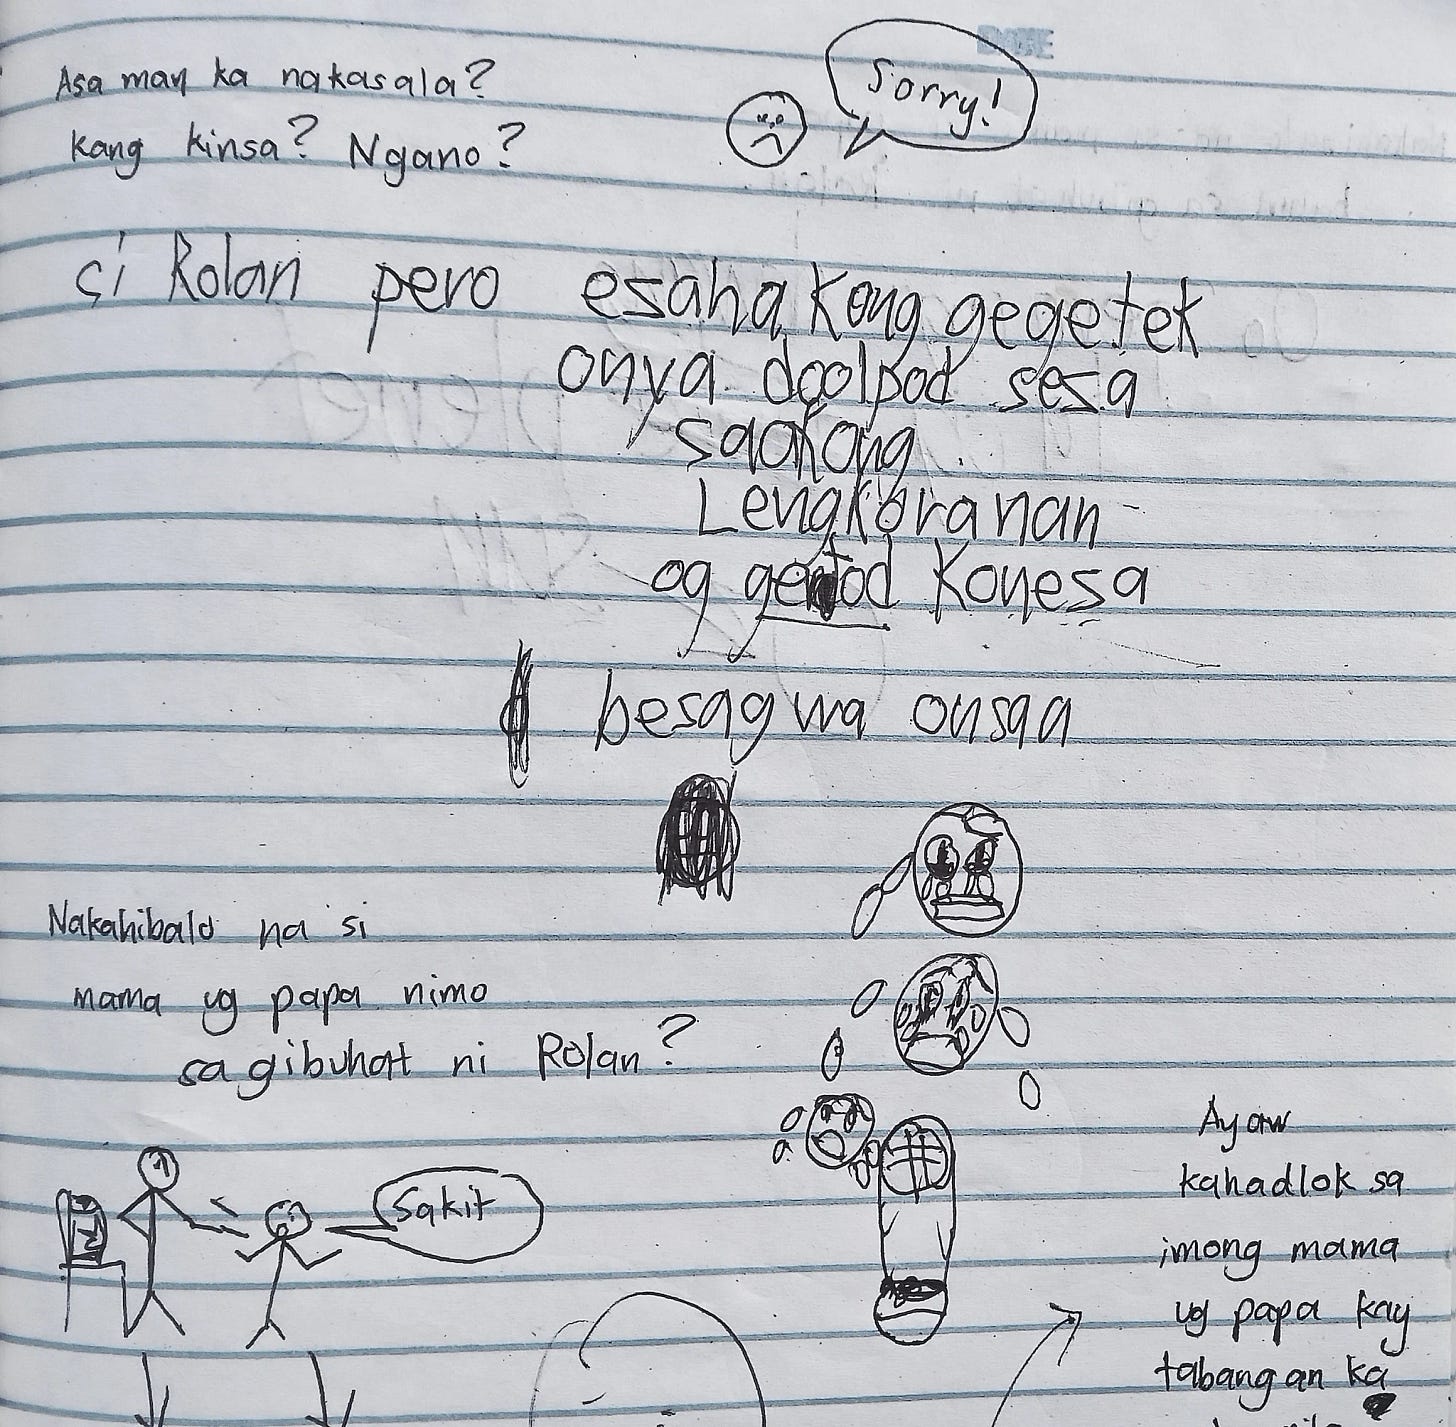 Asa man ka nakasala?
kang kinsa? Ngano?
Sorry!
si Rolan pero esaha kong gegetek
onya doolpad sesa
saakong
Lengkoranan
og gentod Konesa
besag wa onsaa
Nakahibalo na si
mama ug papa nimo
sa gibuhat ni Rolan?
Sakit
Ayaw
kahadlok sa
imong mama
ug papa kay
tabangan ka